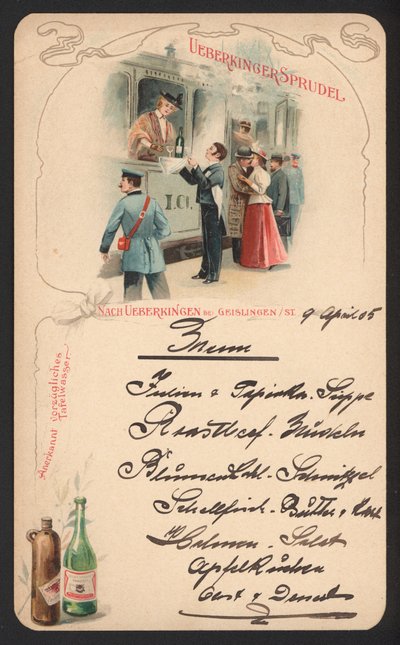 UEBERKINGER SPRUDEL
I.Cl.
NACH UEBERKINGEN BEI GEISLINGEN/ST.
9 April 05
Menu
Julien & Tapioka-Suppe
Roastbeef-Nudeln
Blumenkohl-Schnitzel
Schellfisch-Butter &
Salat
Apfelkuchen
&
Anerkannt vorzügliches
Tafelwasser